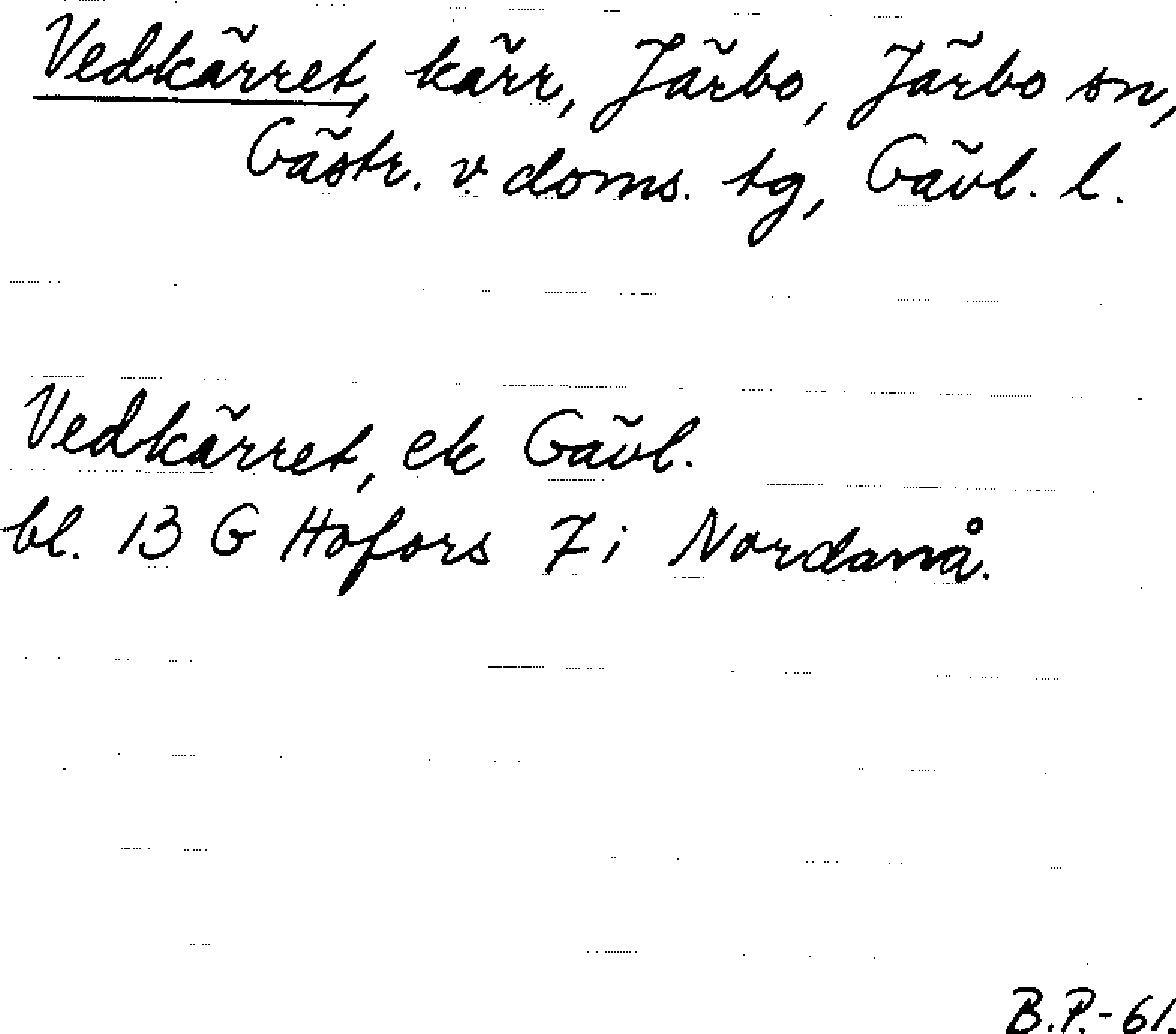 Vedkärret, kärr, Järbo, Järbo sn,
Gästr. v doms. tg, Gävl. l.
Vedkärret, ek Gävl.
bl. 13 G Hofors 7 i Nordanå.
B.P.-61.